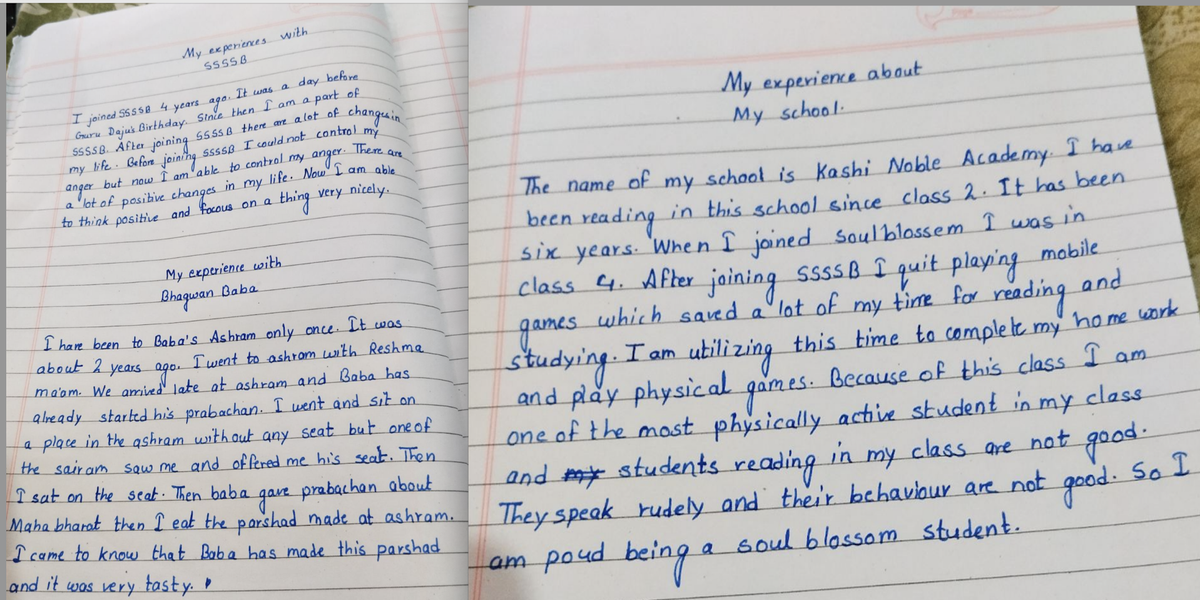 My experiences with
SSSSB
I joined SSSSB 4 years ago. It was a day before
Guru Daju's Birthday. Since then I am a part of
SSSSB. After joining SSSSB there are alot of changes in
my life. Before joining SSSSB I could not control my
anger but now I am able to control my anger. There are
a lot of positive changes in my life. Now I am able
to think positive and focous on a thing very nicely.
My experience with
Bhagwan Baba
I have been to Baba's Ashram only once. It was
about 2 years ago. I went to ashram with Reshma
ma'am. We arrived late at ashram and Baba has
already started his prabachan. I went and sit on
a place in the ashram without any seat but one of
the sairam saw me and offered me his seat. Then
I sat on the seat. Then baba gave prabachan about
Maha bharat then I eat the parshad made at ashram.
I came to know that Baba has made this parshad
and it was very tasty.
My experience about
My school.
The name of my school is Kashi Noble Academy. I have
been reading in this school since class 2. It has been
six years. When I joined soulblossem I was in
class 4. After joining SSSSB I quit playing mobile
games which saved a lot of my time for reading and
studying. I am utilizing this time to complete my home work
and play physical games. Because of this class I am
one of the most physically active student in my class
and my students reading in my class are not good.
They speak rudely and their behaviour are not good. So I
am poud being a soul blossom student.